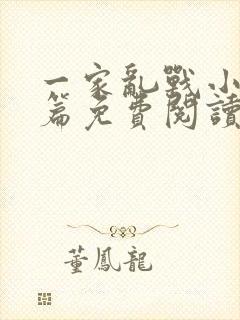 一家亂戰小
篇免費閱讀
董鳳龍